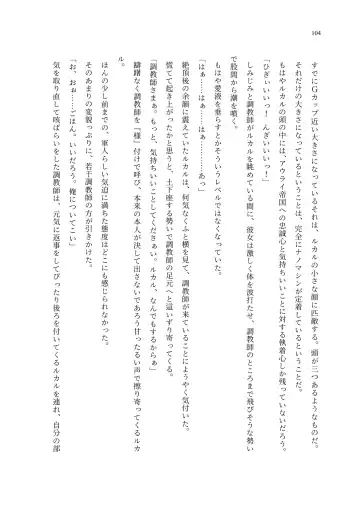 104
すでにGカップ近い大きさになっているそれは、ルカルの小さな顔に匹敵する。頭が三つあるようなものだ。
それだけの大きさになっているということは、完全にナノマシンが定着しているということだ。
もはやルカルの頭の中には、アウライ帝国への忠誠心と気持ちいいことに対する執着心しか残っていないだろう。
「ひぎぃいいいっ！　んぎいいいっ！」
しみじみと調教師がルカルを眺めている間に、彼女は激しく体を波打たせ、調教師のところまで飛びそうな勢い
で股間から潮を噴く。
もはや愛液を垂らすとかそういうレベルではなくなっていた。
「はぁ……はぁ……はぁ……あっ」
絶頂後の余韻に震えていたルカルは、何気なくふと横を見て、調教師が来ていることにようやく気付いた。
慌てて起き上がったかと思うと、土下座する勢いで調教師の足元へと這いずり寄ってくる。
「調教師さまぁ。もっと、気持ちいいことしてくださぁい。ルカル、なんでもするからぁ」
躊躇なく調教師を『様』付けで呼び、本来の本人が決して出さないであろう甘ったるい声で擦り寄ってくるルカ
ル。
ほんの少し前までの、軍人らしい気迫に満ちた態度はどこにも感じられなかった。
そのあまりの変貌っぷりに、若干調教師の方が引きかけた。
「お、おぉ……ごほん。いいだろう。俺についてこい」
気を取り直して咳ばらいをした調教師は、元気に返事をしてぴったり後ろを付いてくるルカルを連れ、自分の部